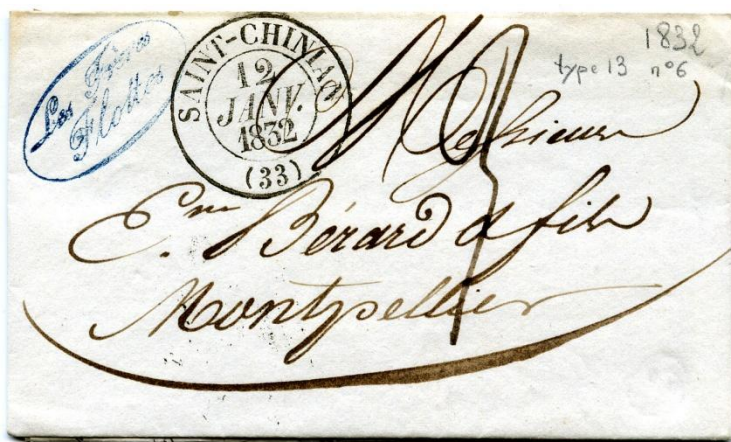 Les Frères
Flottes
SAINT-CHINIAN
12
JANV.
1832
(33)
1832
type 13 n°6
Messieurs
Em Bérard & fils
Montpellier